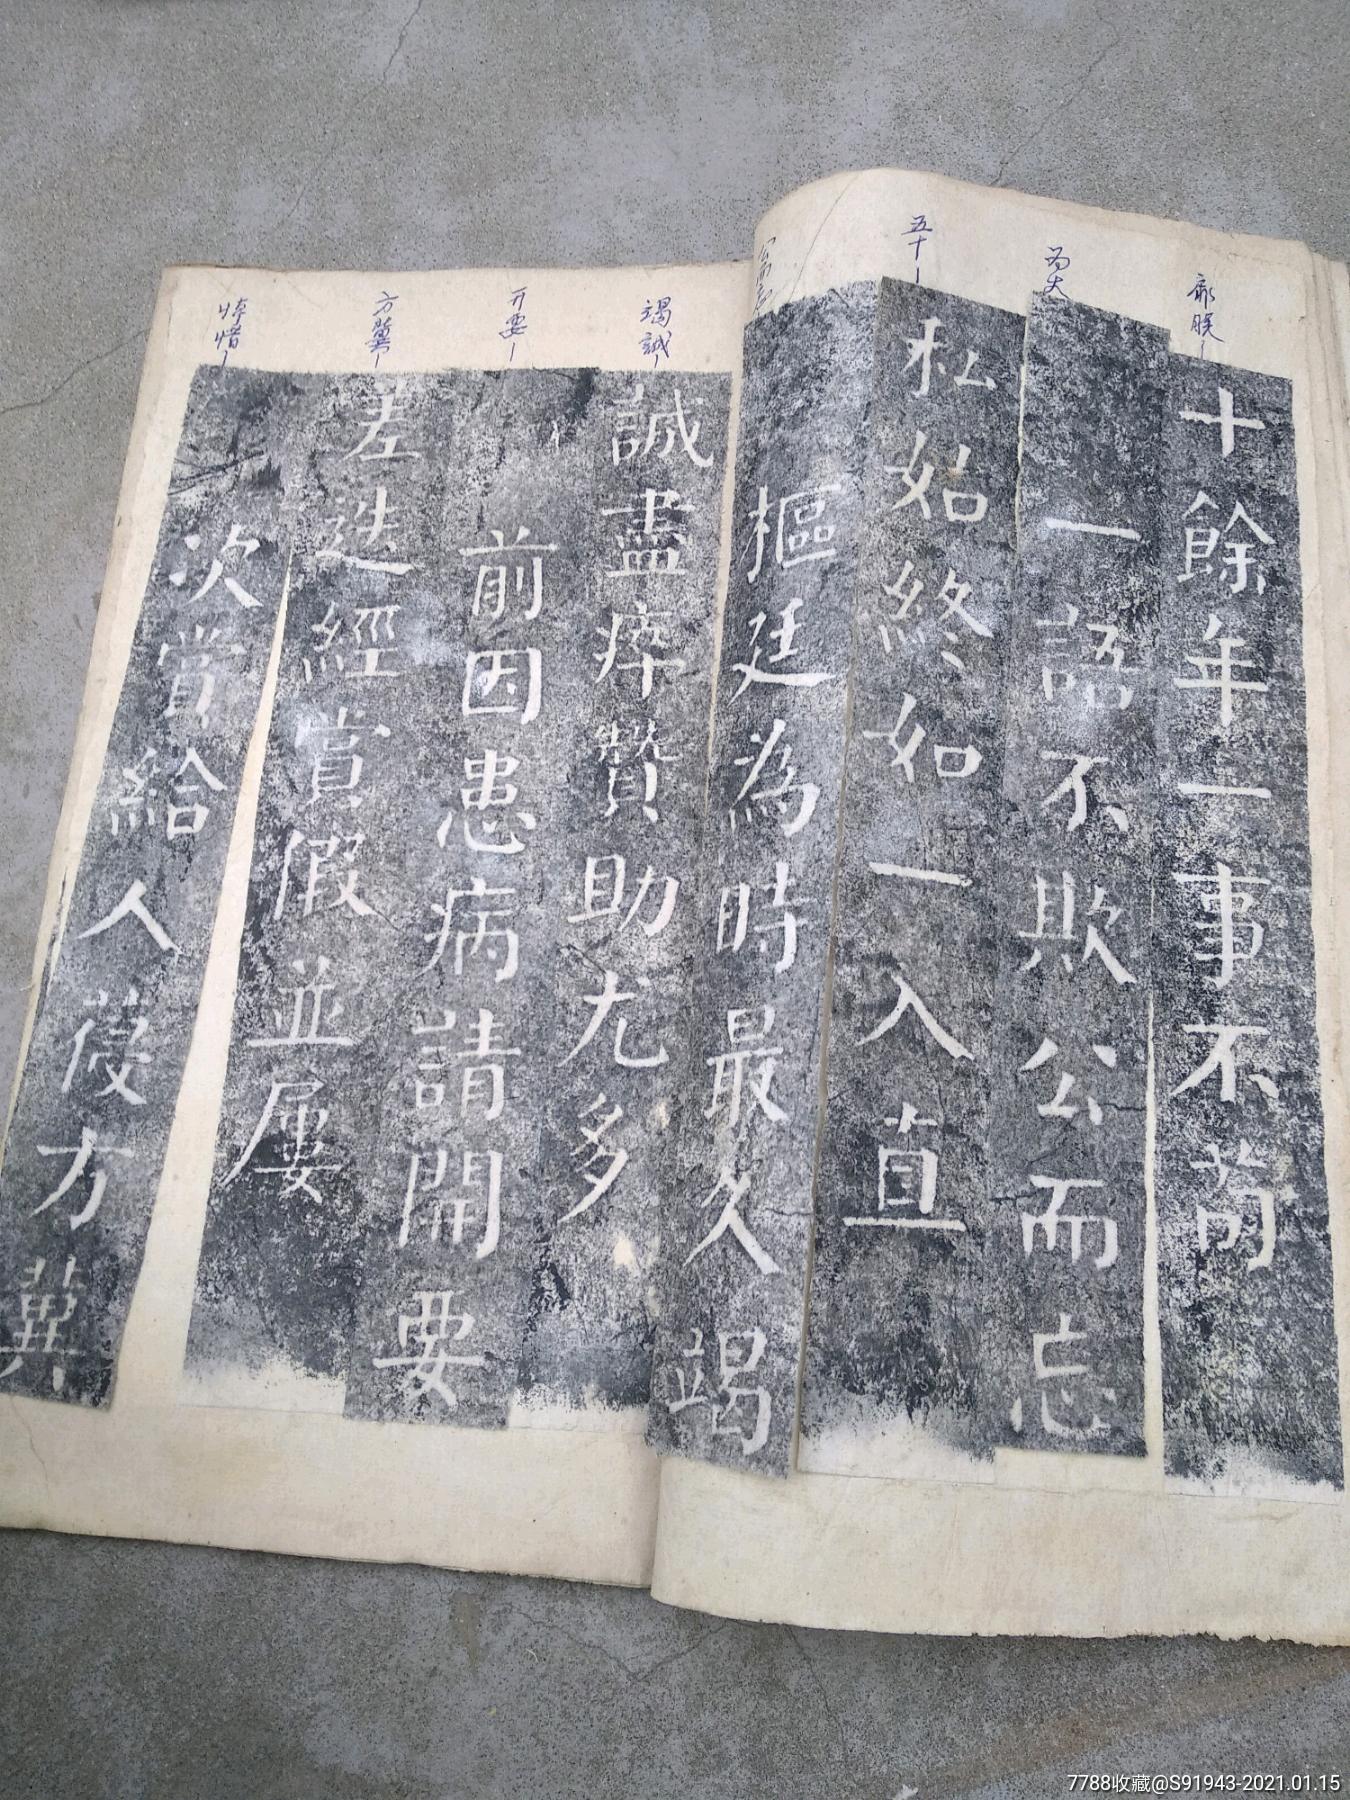 十餘年一事不苟
一語不欺公而忘
私始終如一入直
樞廷為時最久竭
誠盡瘁贊助尤多
前因患病請開要
差迭經賞假並屢
次賞給人葠方冀
五十
竭誠
开要
方冀
悼惜
7788收藏@S91943-2021.01.15